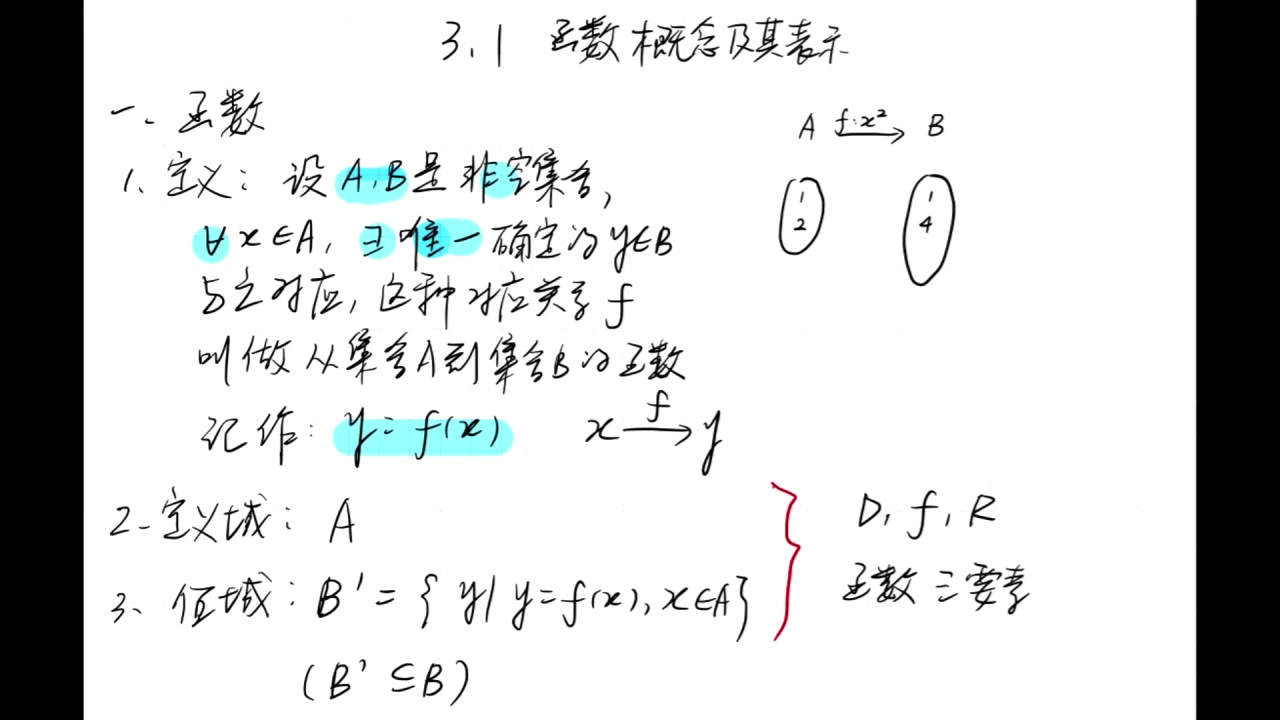 3.1 函数概念及其表示
一、函数
1、定义：设A,B是非空集合,
∀x∈A, ∃唯一确定的y∈B
与之对应, 这种对应关系f
叫做从集合A到集合B的函数
记作: y=f(x) x \xrightarrow{f} y
A \xrightarrow{f:x²} B
1 1
2 4
2、定义域: A
3、值域: B'={y|y=f(x),x∈A}
(B'⊆B)
D, f, R
函数三要素